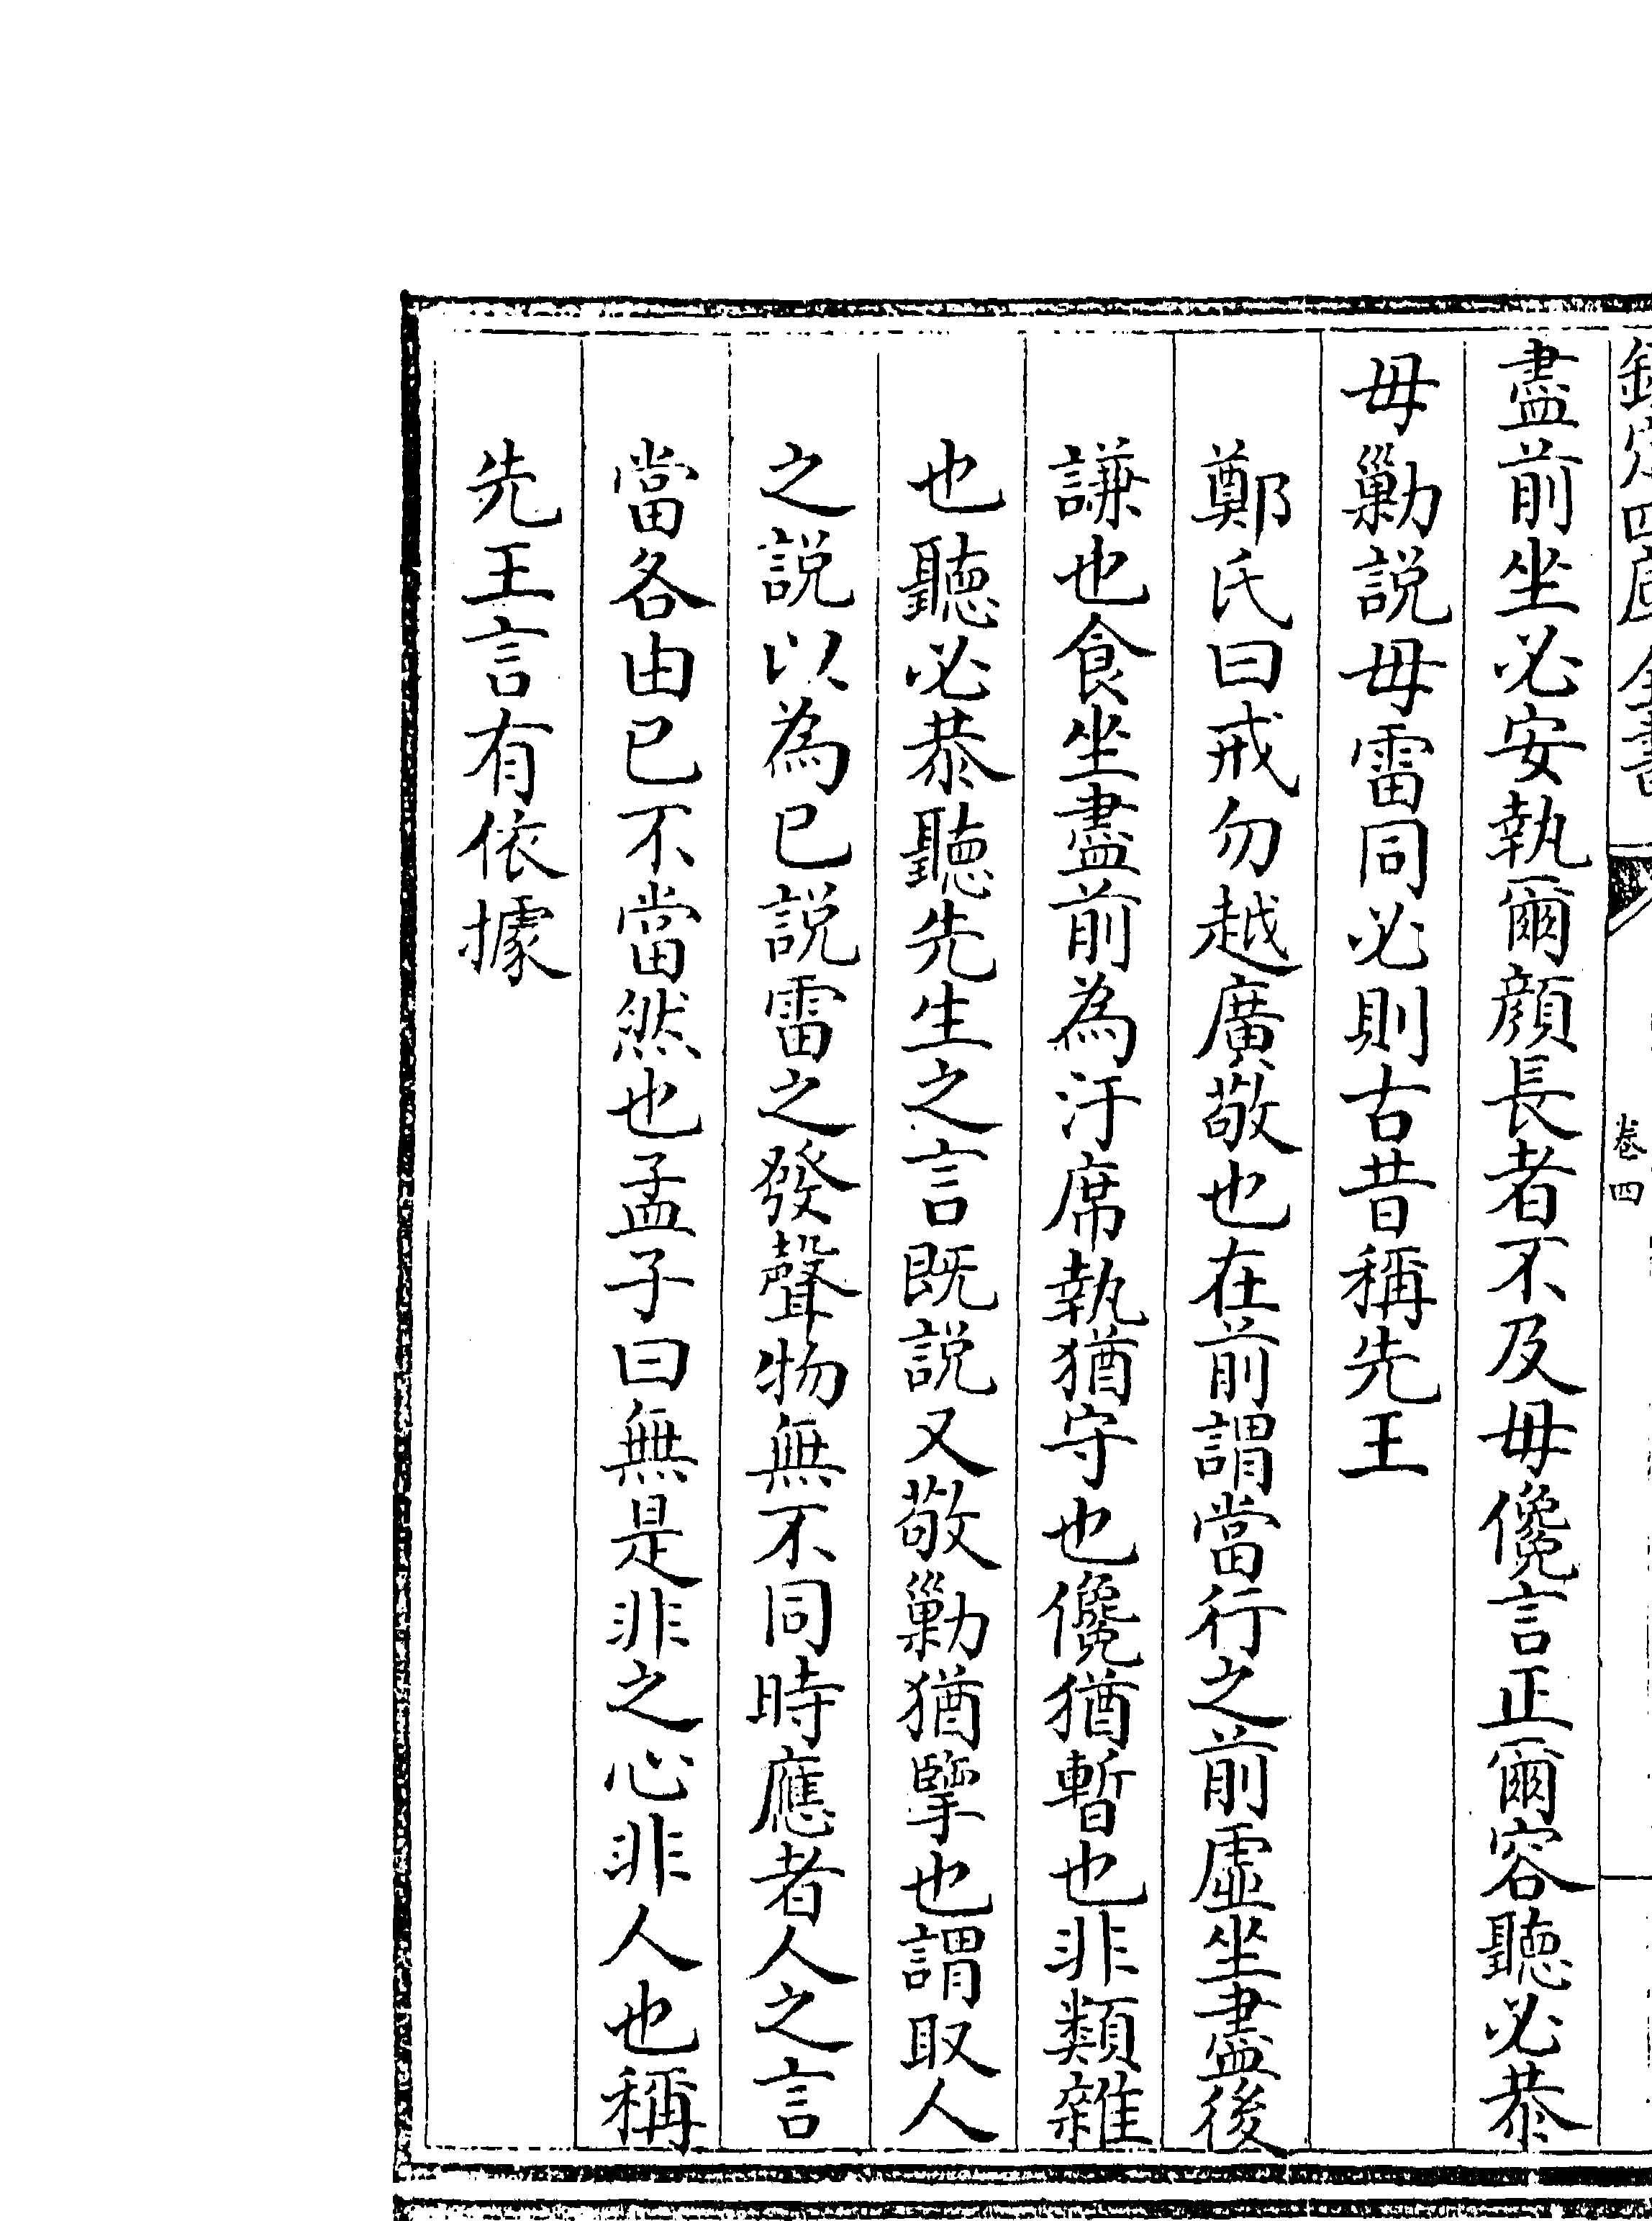 欽定四庫全書
卷四
盡前坐必安執爾顔長者不及毋儳言正爾容聽必恭
毋勦説毋雷同必則古昔稱先王
鄭氏曰戒勿越廣敬也在前謂當行之前虛坐盡後
謙也食坐盡前為汙席執猶守也儳猶暫也非類雜
也聽必恭聽先生之言既説又敬勦猶擥也謂取人
之説以為已説雷之發聲物無不同時應者人之言
當各由已不當然也孟子曰無是非之心非人也稱
先王言有依據